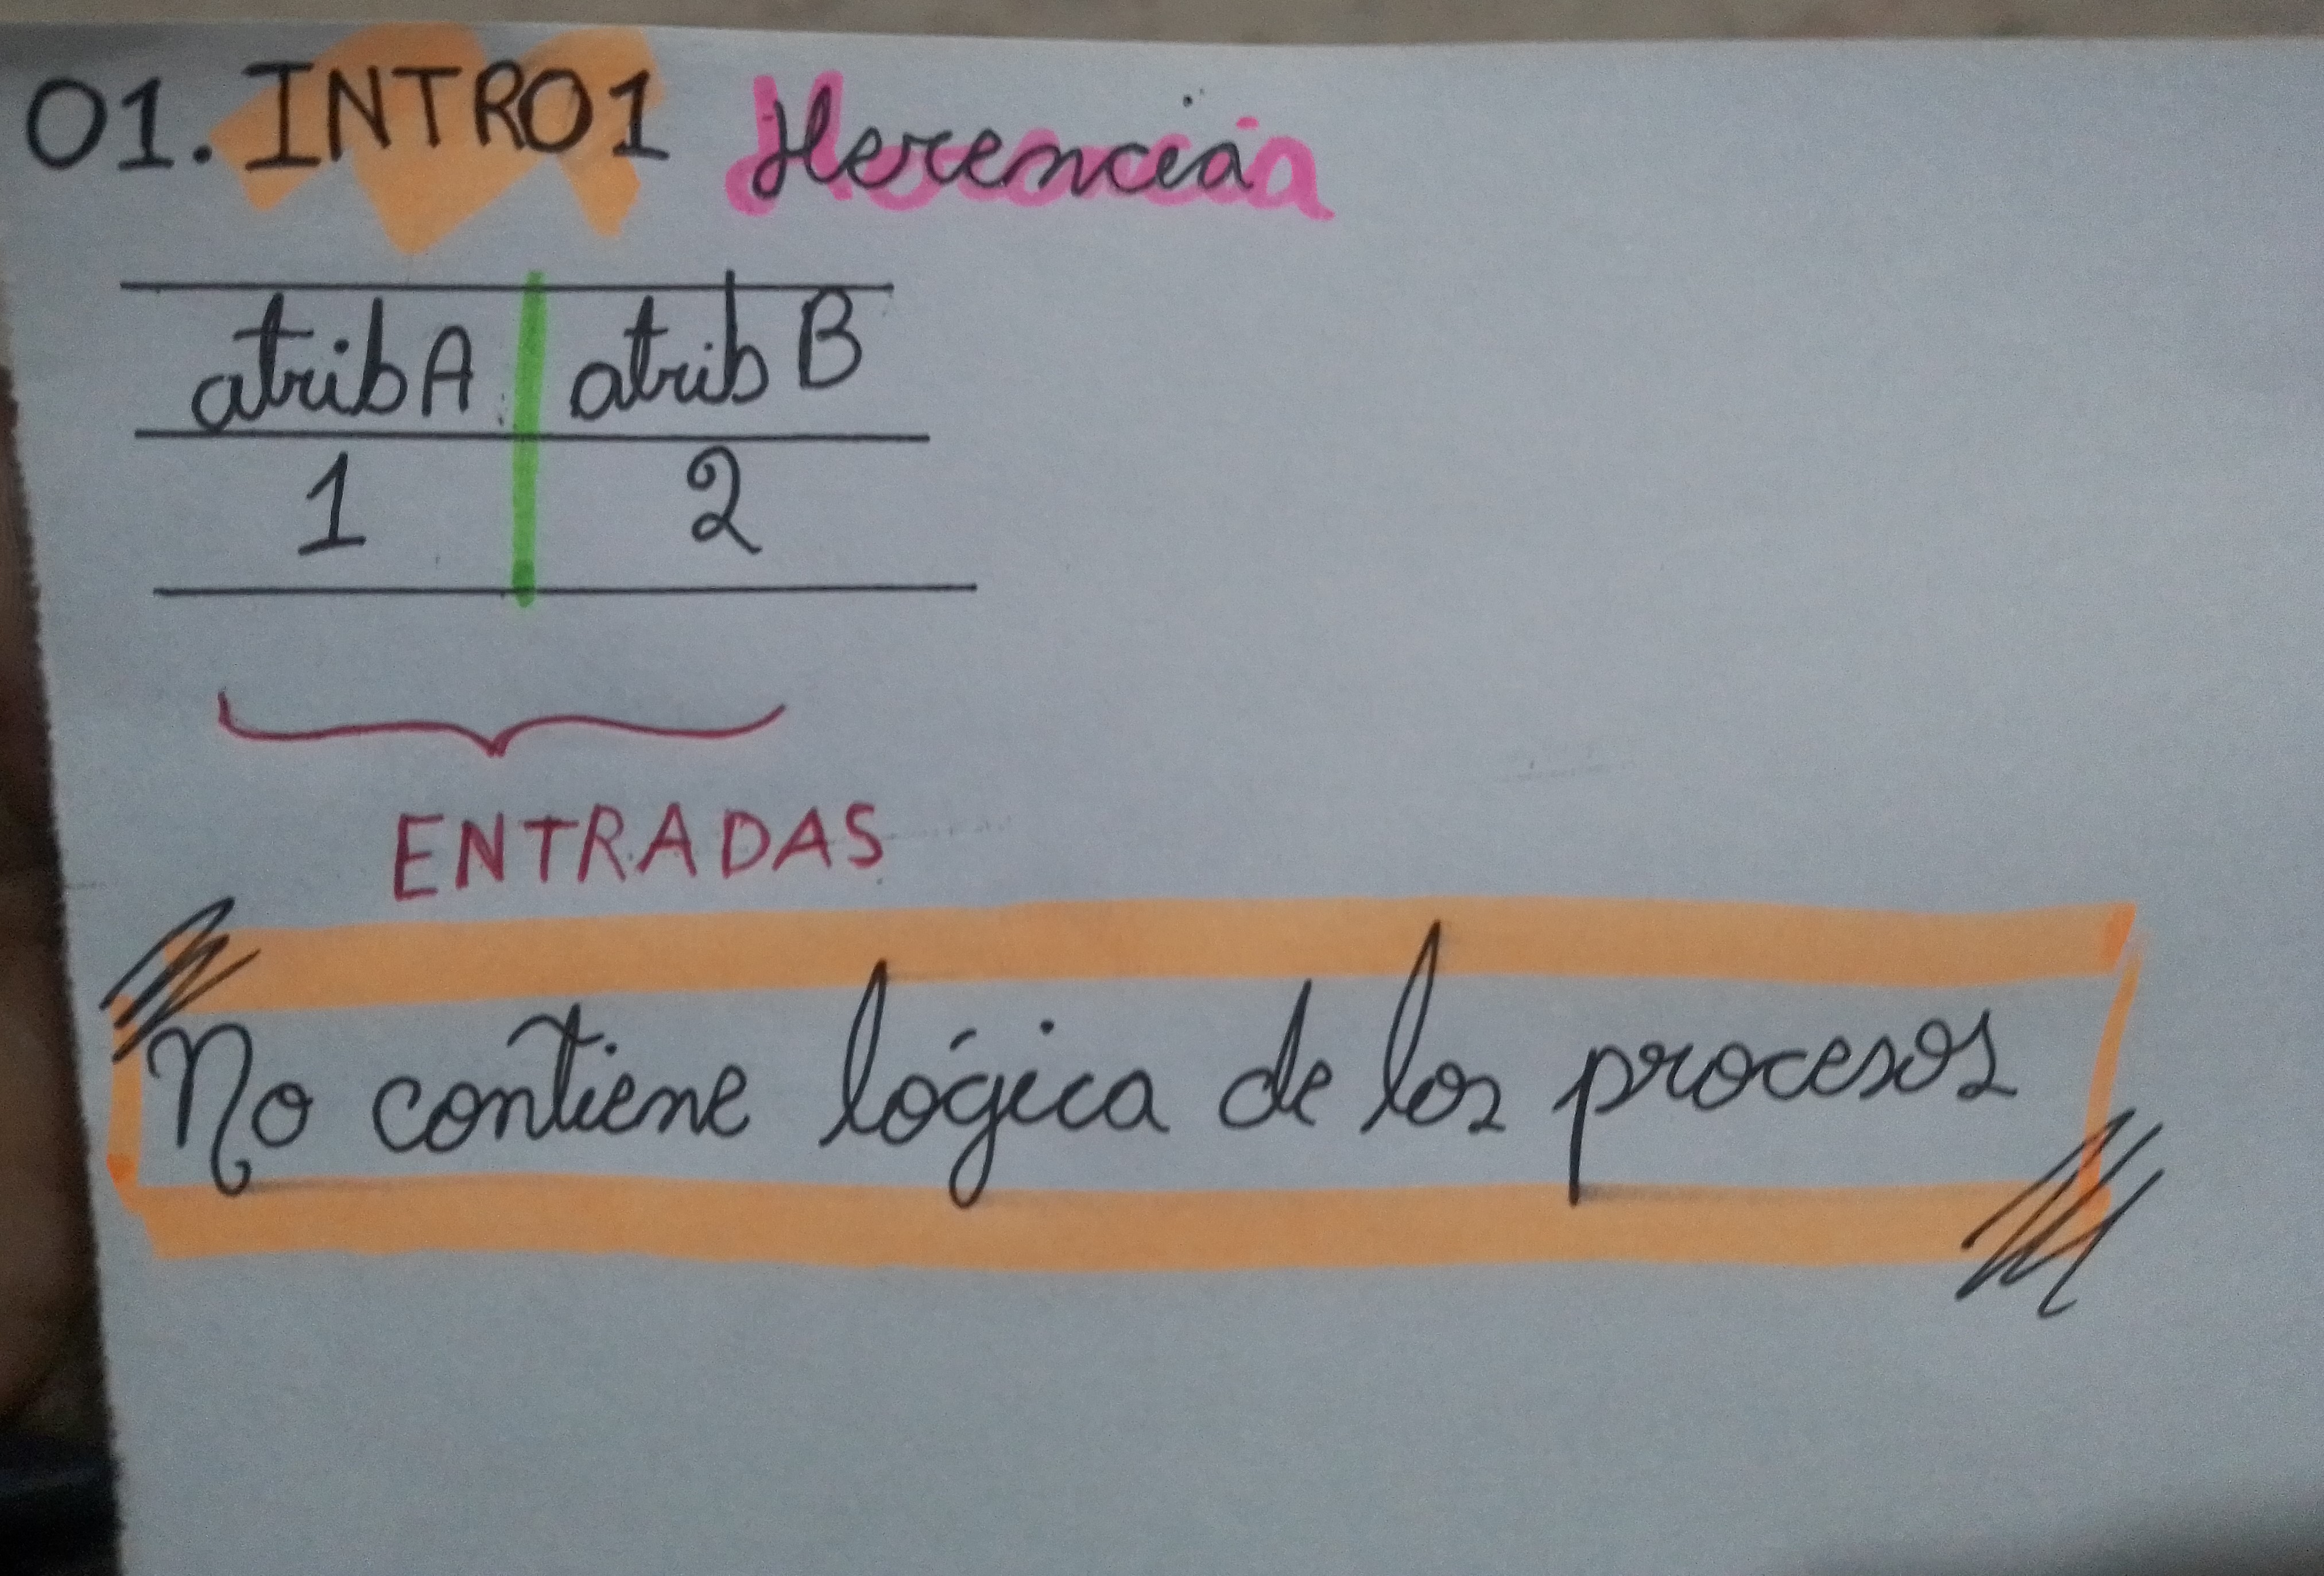 01. INTRO1 Herencia
atribA atribB
1 2
ENTRADAS
No contiene lógica de los procesos